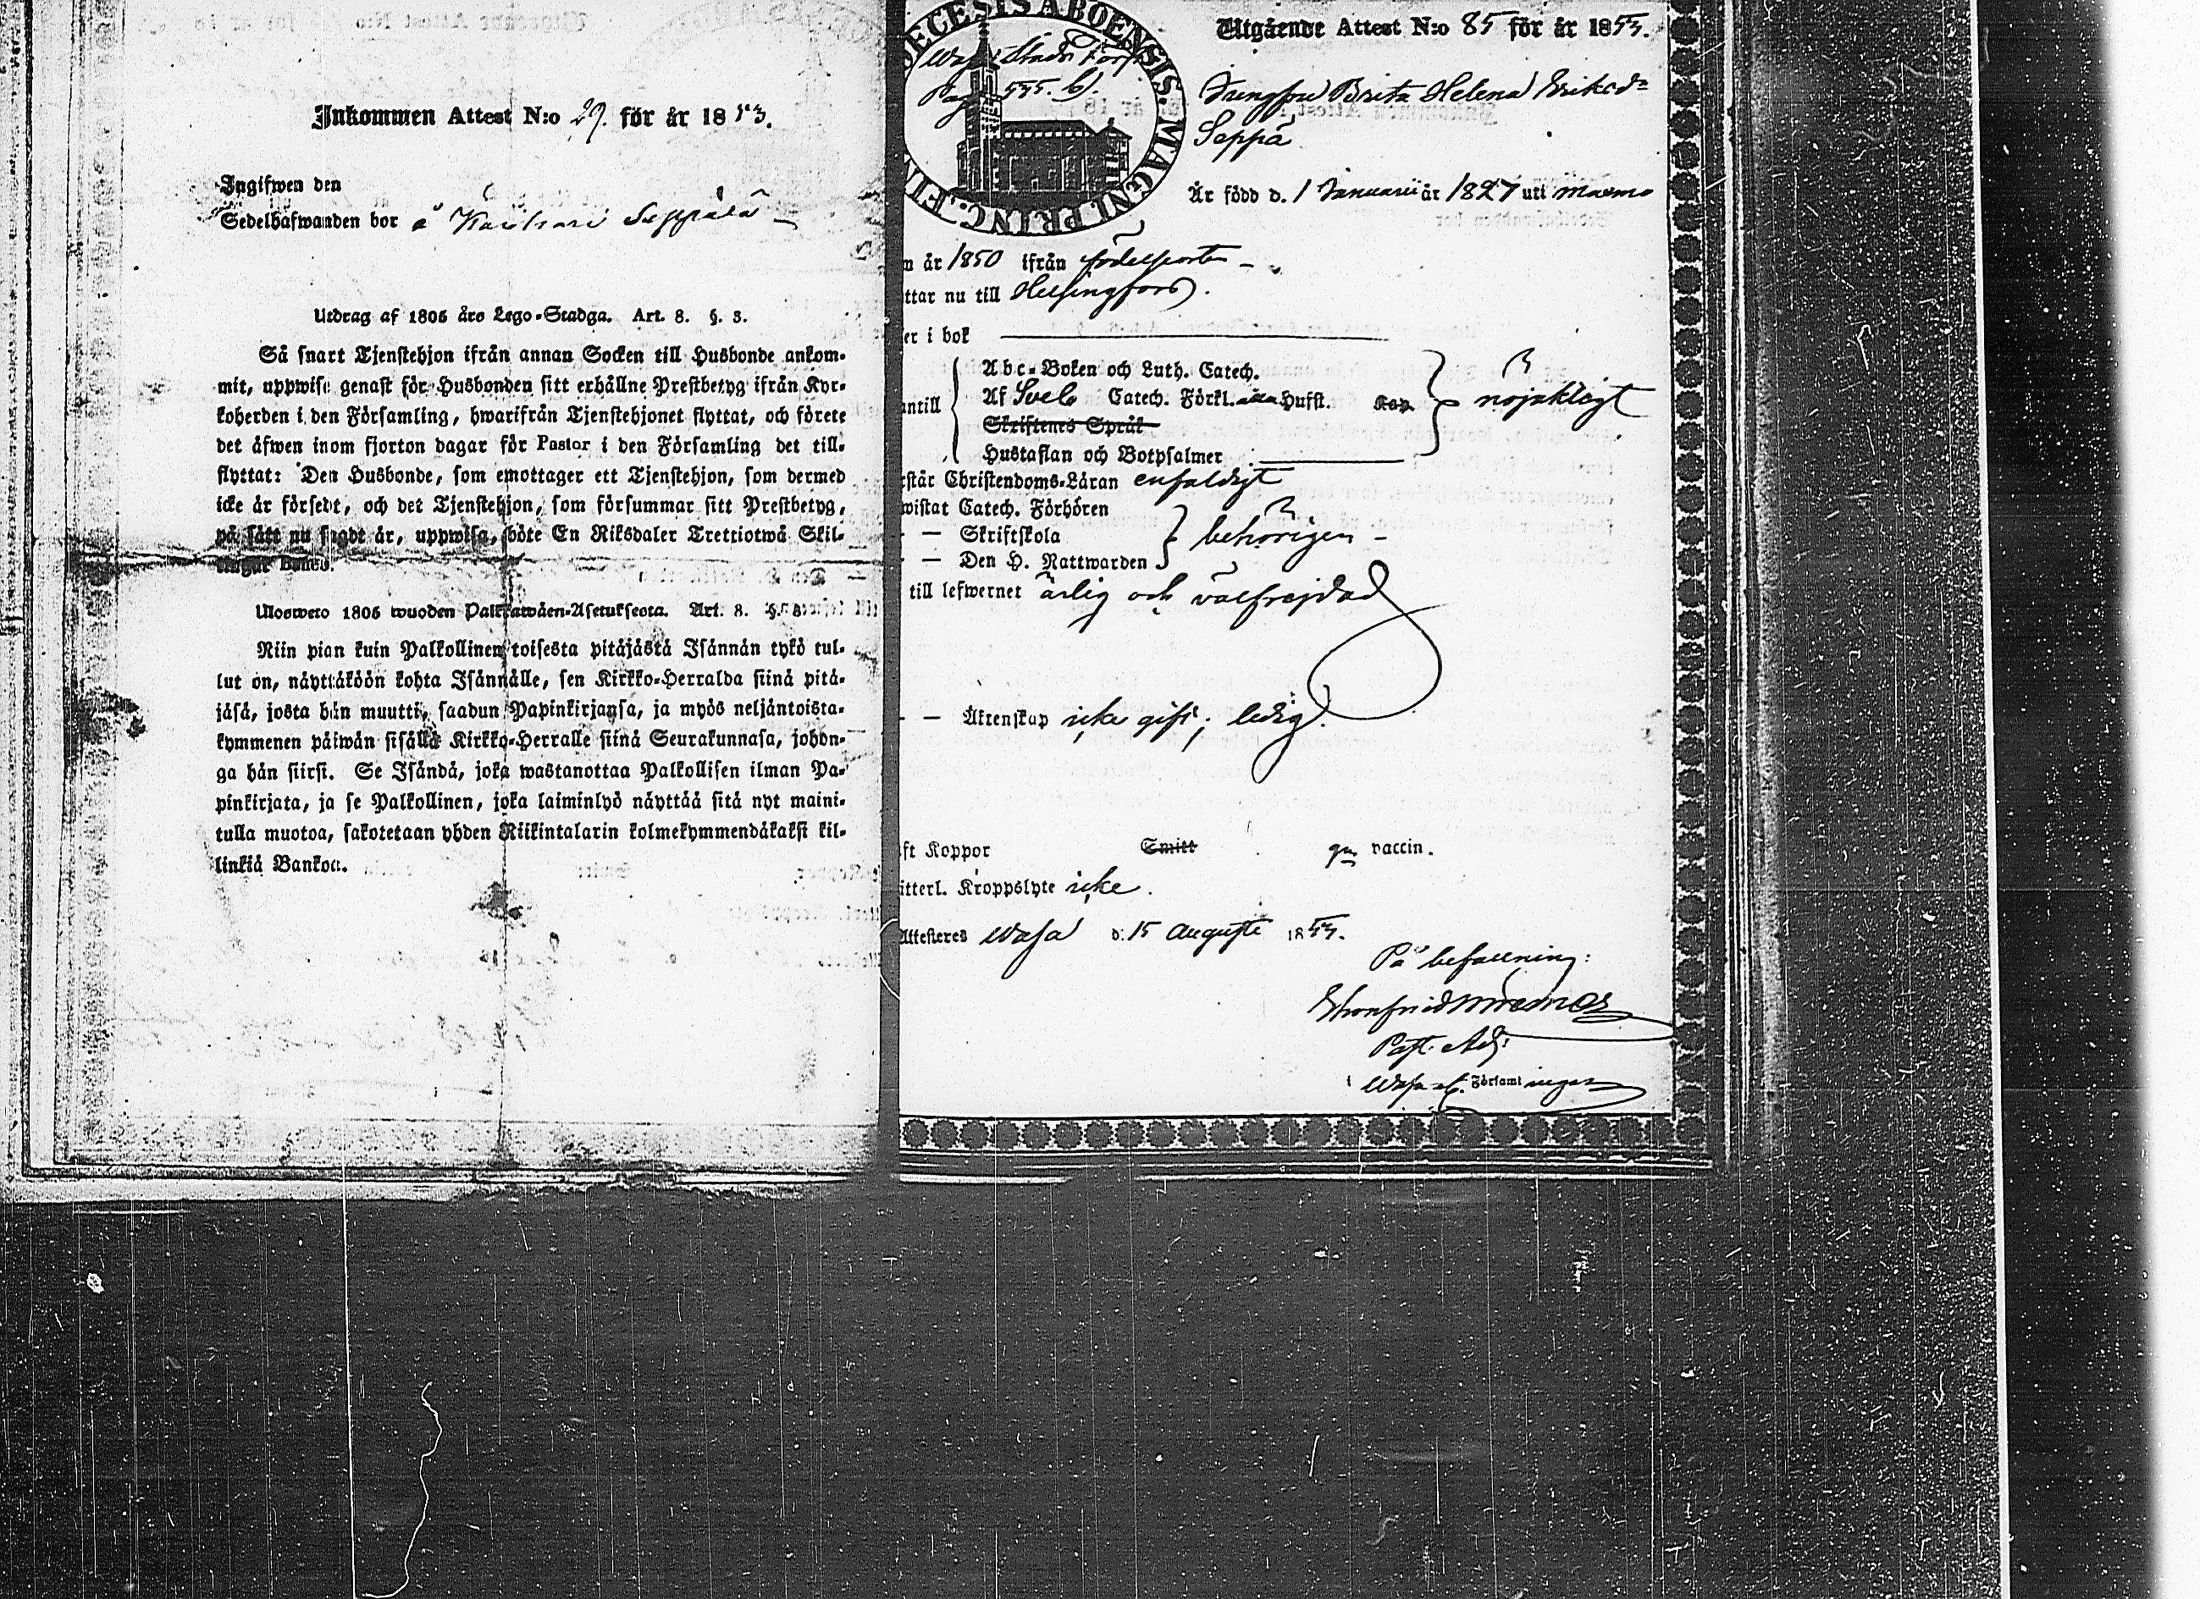 Inkommen Attest N:o 29. för år 1853.
Ingifwen den
Sedelhafwanden bor å Seppälä
Utdrag af 1805 års Lego-Stadga. Art. 8. §. 3.
Så snart Tjenstehjon ifrån annan Socken till Husbonde ankom-
mit, uppwise genast för Husbonden sitt erhållne Prestbetyg ifrån Kyr-
koherden i den Församling, hwarifrån Tjenstehjonet flyttat, och förete
det äfwen inom fjorton dagar för Pastor i den Församling det till-
flyttat: Den Husbonde, som emottager ett Tjenstehjon, som dermed
icke är försedt, och det Tjenstehjon, som försummar sitt Prestbetyg,
på sätt nu sagdt är, uppwisa, böte En Riksdaler Trettiotwå Skil-
lingar Banco.
Ulosweto 1805 wuoden Palkkawäen-Asetuksesta. Art. 8. §. 3.
Niin pian kuin Palkollinen toisesta pitäjästä Isännän tykö tul-
lut on, näyttäköön kohta Isännälle, sen Kirkko-Herralda siinä pitä-
jäsä, josta hän muutti, saadun Papinkirjansa, ja myös neljäntoista-
kymmenen päiwän sisällä Kirkko-Herralle siinä Seurakunnasa, johon-
ga hän siirsi. Se Isändä, joka wastanottaa Palkollisen ilman Pa-
pinkirjata, ja se Palkollinen, joka laiminlyö näyttää sitä nyt maini-
tulla muotoa, sakotetaan yhden Riikintalarin kolmekymmendäkaksi kil-
linkiä Bankoa.
ECESIS ABOENSIS. MAGNI PRINC. FIN
Wasa Stads Förs
Pag. 555. b).
Utgående Attest N:o 85 för år 1853.
Jungfru Brita Helena Eriksdr
Seppä
Är född d. 1 Januarii år 1827 uti Maxmo
n år 1850 ifrån födelseorten
ttar nu till Helsingfors.
er i bok
antill
Abc-Boken och Luth. Catech.
Af Svebs Catech. Förkl. Hufst.
Skriftenes Språk
Hustaflan och Botpsalmer
nöjaktigt
står Christendoms-Läran enfaldigt
wistat Catech. Förhören
— Skriftskola
— Den H. Nattwarden
behörigen
till lefwernet ärlig och välfrejdad
— Äktenskap icke gift; ledig.
ft Koppor Smitt gm vaccin.
itterl. Kroppslyte icke.
Attesteres Wasa d. 15 Augusti 1853.
På befallning:
Past. Adj.
i Wasa Församlingar